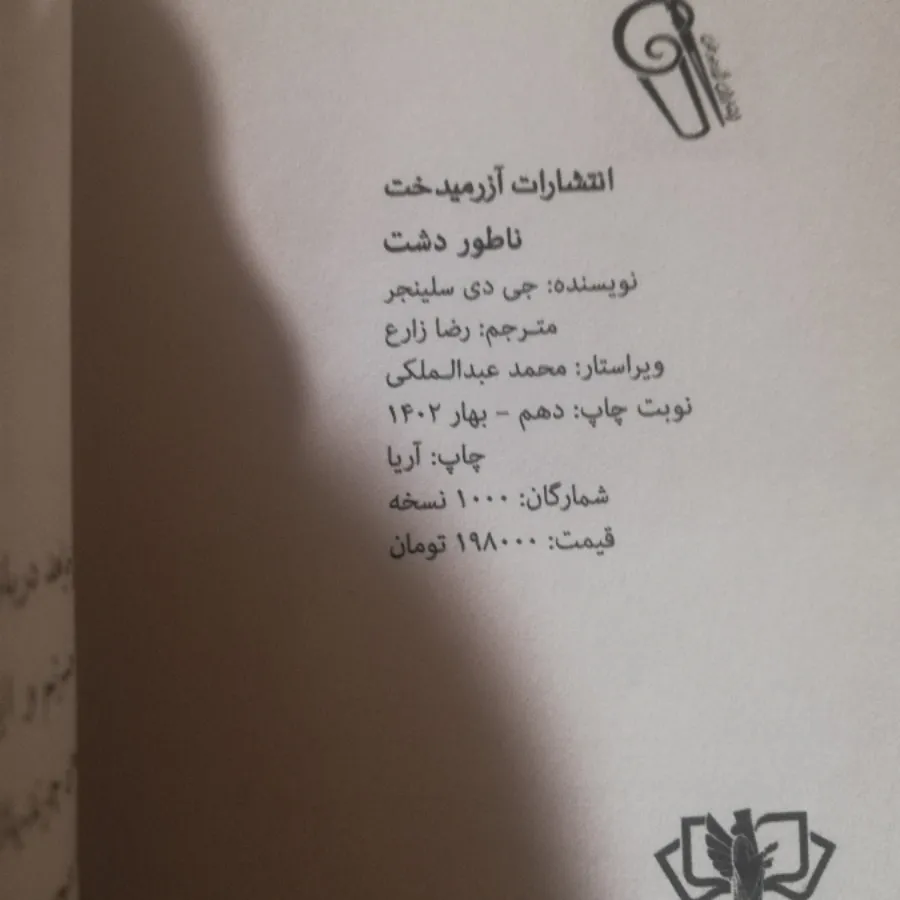 انتشارات آزرمیدخت
ناطور دشت
نویسنده: جی دی سلینجر
مترجم: رضا زارع
ویراستار: محمد عبدالـملکی
نوبت چاپ: دهم - بهار ۱۴۰۲
چاپ: آریا
شمارگان: ۱۰۰۰ نسخه
قیمت: ۱۹۸۰۰۰ تومان